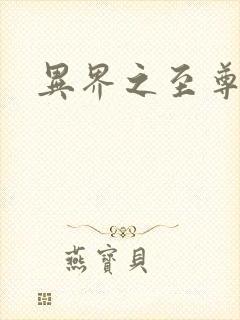 異界之至尊
燕寶貝